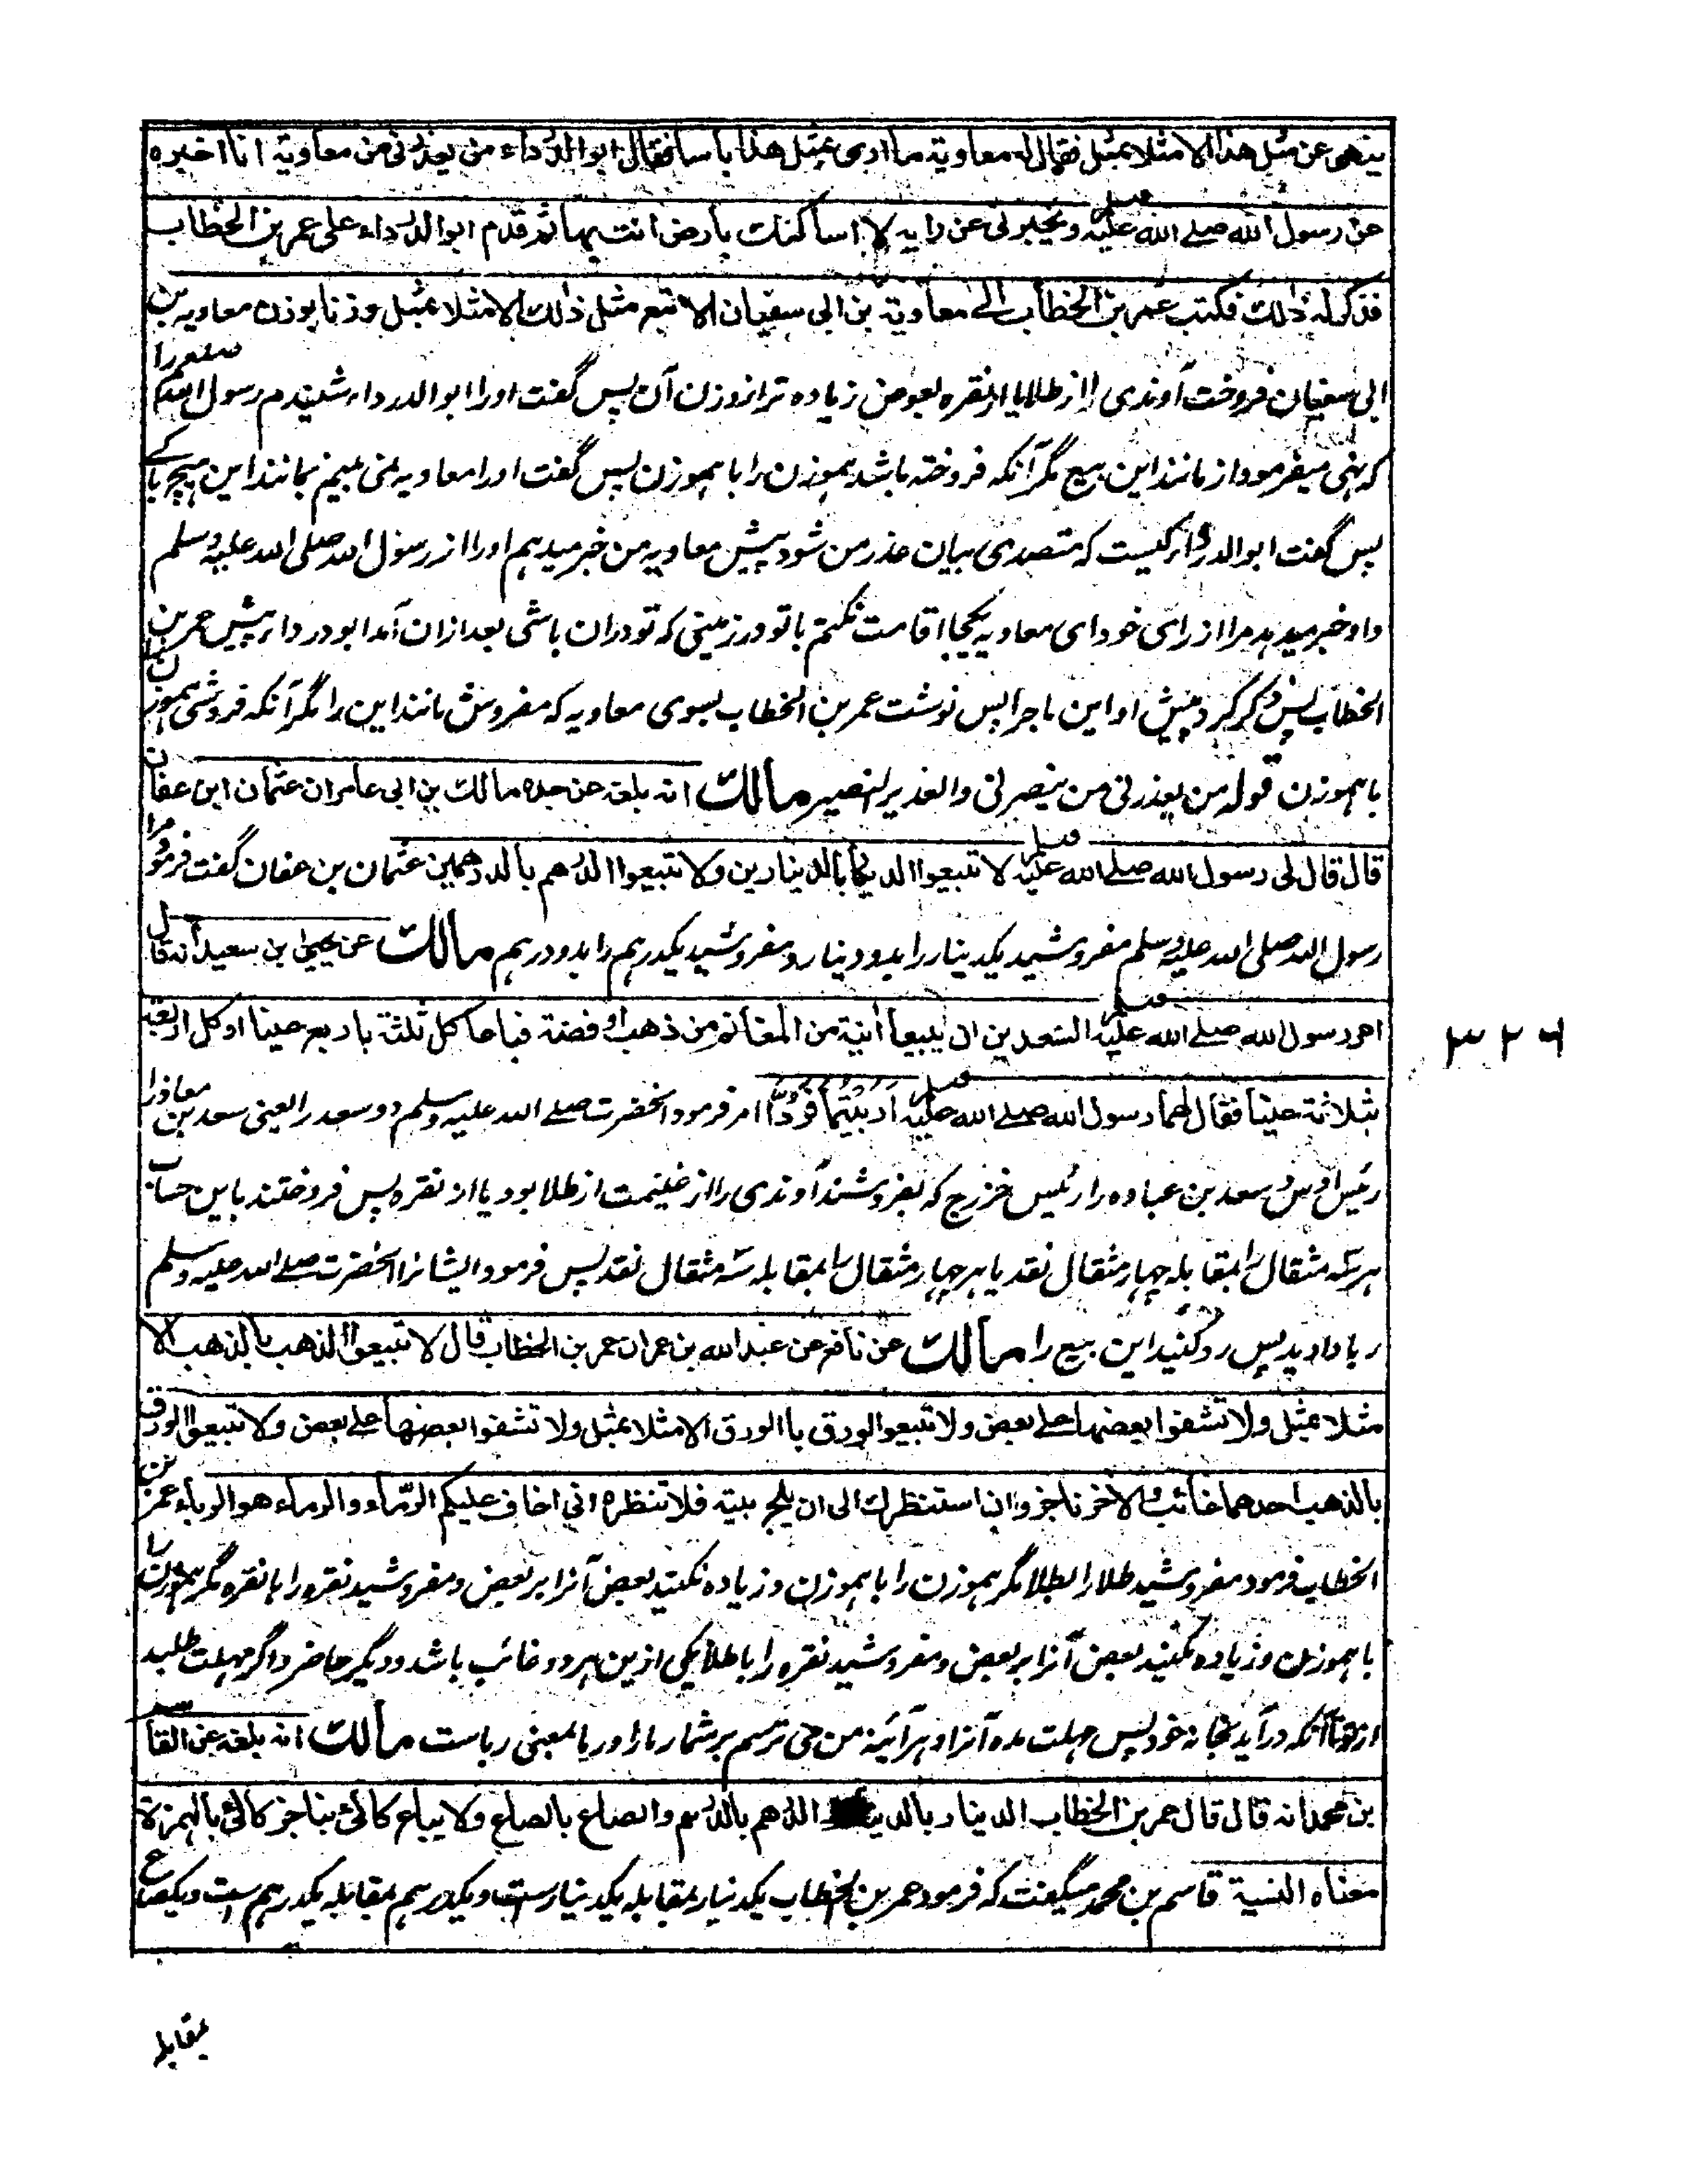 ينهى عن مثل هذا الا مثلا بمثل فقال له معاوية ما ارى بمثل هذا باسا فقال ابو الدرداء من يعذرنى من معاوية انا اخبره
عن رسول الله صلے الله عليه وسلم ويخبرنى عن رايه لا اساكنك بارض انت بها ثم قدم ابو الدرداء على عمر بن الخطاب
فذكر له ذلك فكتب عمر بن الخطاب الے معاوية بن ابى سفيان الا تبع مثل ذلك الا مثلا بمثل وزنا بوزن معاويه بن
ابى سفيان فروخت آوندى را از طلا يا از نقره بعوض زياده تر از وزن آن پس گفت اورا ابو الدرداء شنيدم رسول الله صلعم را
كه نهى ميفرمود از مانند اين بيع مگر آنكه فروخته باشد هموزن را با هموزن پس گفت اورا معاويه نمى بينم بمانند اين هيچ باكے
پس گفت ابو الدرداء كيست كه متصدى بيان عذر من شود پيش معاويه من خبر ميدهم اورا از رسول الله صلى الله عليه وسلم
و او خبر ميدهد مرا از راى خود اى معاويه يكجا اقامت نكنم با تو در زمينى كه تو دران باشى بعد ازان آمد ابو درداء پيش عمر بن
الخطاب پس ذكر كرد پيش او اين ماجرا پس نوشت عمر بن الخطاب بسوى معاويه كه مفروش مانند اين را مگر آنكه فروشى هموزن
با هموزن قوله من يعذرنى من ينصرنى والعذير النصير مالك انه بلغه عن جده مالك بن ابى عامر ان عثمان ابن عفان
قال قال لى رسول الله صلے الله عليه وسلم لا تبيعوا الدينار بالدينارين ولا تبيعوا الدرهم بالدرهمين عثمان بن عفان گفت فرمود مرا
رسول الله صلى الله عليه وسلم مفروشيد يكدينار را بدو دينار و مفروشيد يكدرهم را بدو درهم مالك عن يحيى بن سعيد انه قال
امر رسول الله صلے الله عليه وسلم السعدين ان يبيعا آنية من المغانم من ذهب او فضة فباعا كل ثلثة باربعة عينا او كل اربعة
بثلاثة عينا فقال لهما رسول الله صلے الله عليه وسلم اربيتما فردا امر فرمود آنحضرت صلے الله عليه وسلم دو سعد را يعنى سعد بن معاذ را
رئيس اوس و سعد بن عباده را رئيس خزرج كه بفروشند آوندى را از غنيمت از طلا بود يا از نقره پس فروختند باين حساب
هر سه مثقال را بمقابله چهار مثقال نقد يا هر چهار مثقال را بمقابله سه مثقال نقد پس فرمود ايشانرا آنحضرت صلے الله عليه وسلم
ربا داديد پس رد كنيد اين بيع را مالك عن نافع عن عبد الله بن عمر ان عمر بن الخطاب قال لا تبيعوا الذهب بالذهب الا
مثلا بمثل ولا تشفوا بعضها على بعض ولا تبيعوا الورق بالورق الا مثلا بمثل ولا تشفوا بعضها على بعض ولا تبيعوا الورق
بالذهب احدهما غائب والاخر ناجز وان استنظرك الى ان يلج بيته فلا تنظره انى اخاف عليكم الرماء والرماء هو الرباء عمر بن
الخطاب فرمود مفروشيد طلا را بطلا مگر هموزن را با هموزن و زياده نكنيد بعض آنرا بر بعض و مفروشيد نقره را با نقره مگر هموزن را
با هموزن و زياده نكنيد بعض آنرا بر بعض و مفروشيد نقره را با طلا يكى ازين هر دو غائب باشد و ديگر حاضر و اگر مهلت طلبد
از تو تا آنكه در آيد بخانه خود پس مهلت مده آنرا و هر آئينه من مى ترسم بر شما رما را و رما بمعنى رباست مالك انه بلغه عن القاسم
بن محمد انه قال قال عمر بن الخطاب الدينار بالدينار والدرهم بالدرهم والصاع بالصاع ولا يباع كالئ بناجز كالئ بالهمزة
معناه النسية قاسم بن محمد ميگفت كه فرمود عمر بن الخطاب يكدينار بمقابله يكدينارست و يكدرهم بمقابله يكدرهم ست و يكصاع
بمقابله
٣٢٦